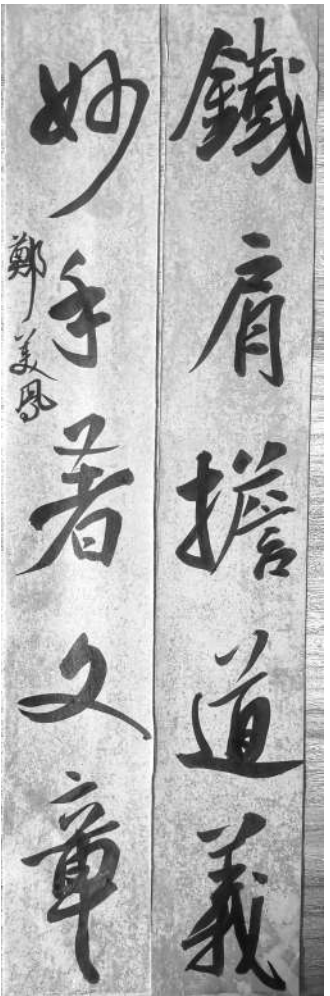 鐵肩擔道義
妙手著文章
鄭美鳳